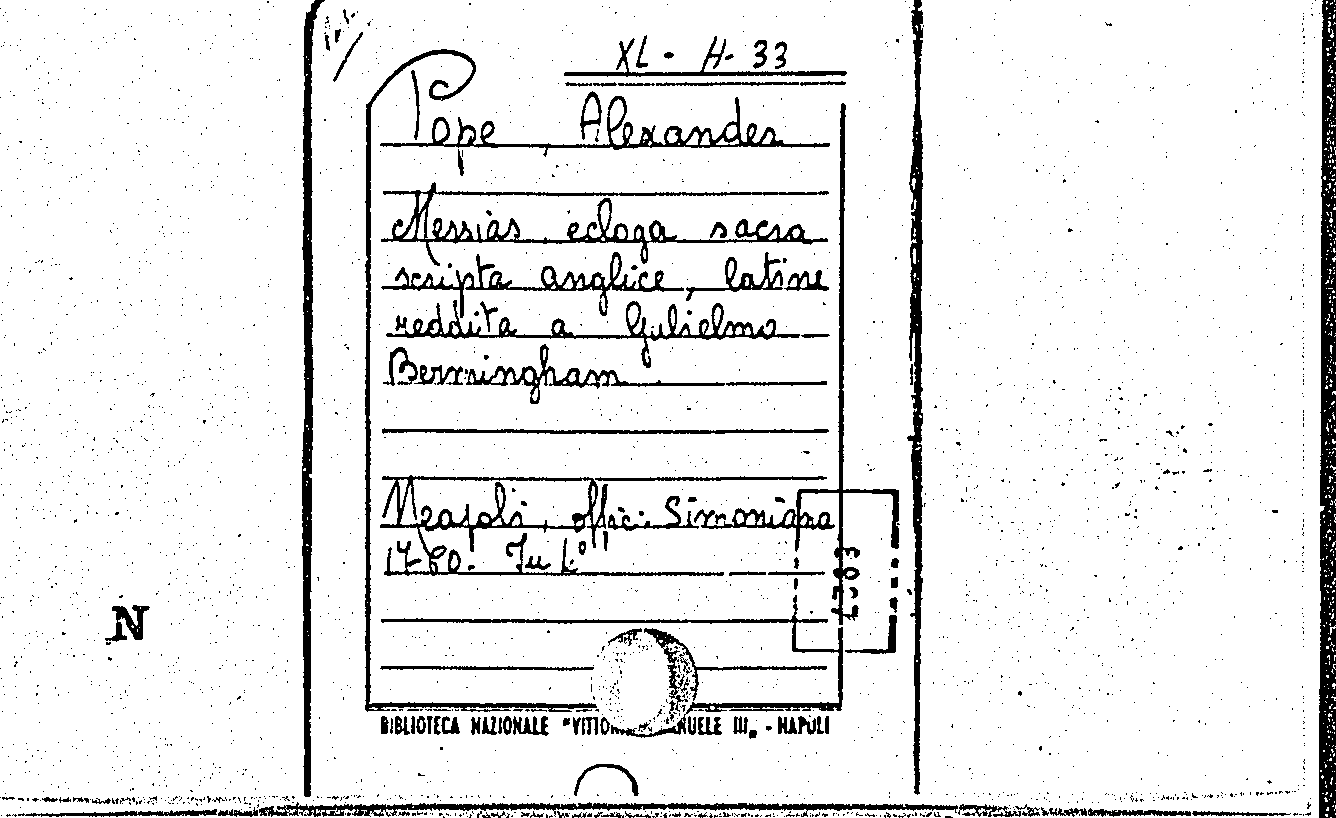 XL - H- 33
Pope, Alexander
Messias ecloga sacra
scripta anglice, latine
reddita a Gulielmo
Bermingham
Neapoli, offic. Simoniana
N
BIBLIOTECA NAZIONALE "VITTORIO EMANUELE III" - NAPOLI